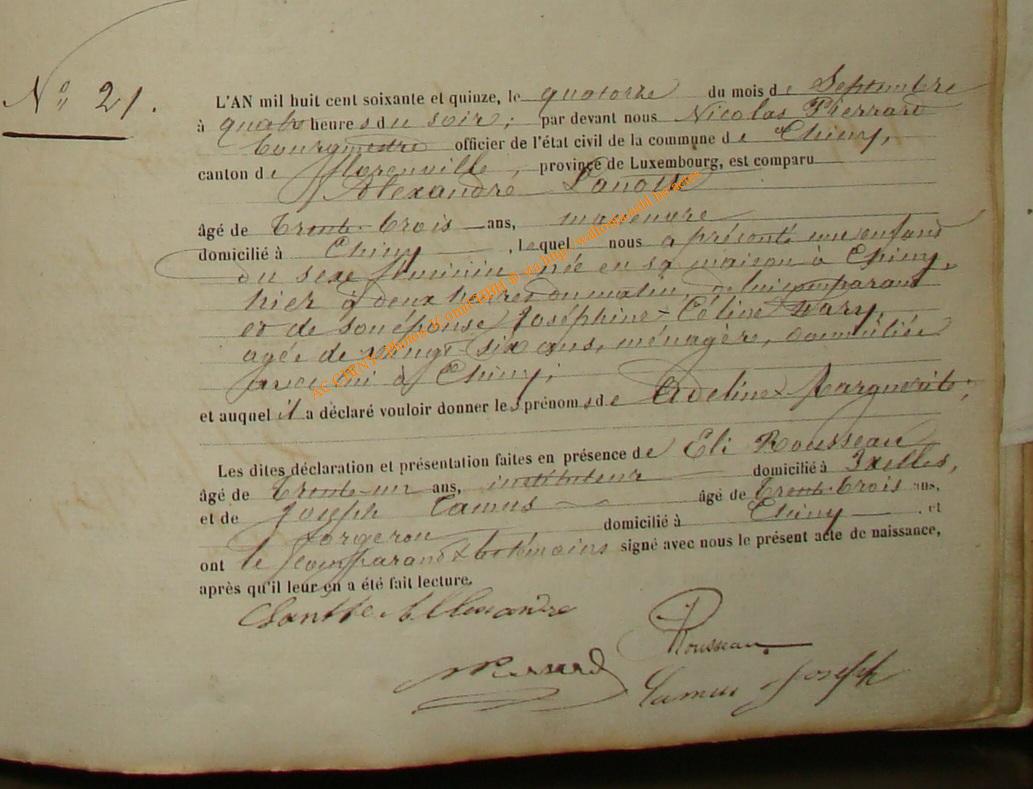 N° 21.
L'AN mil huit cent soixante et quinze, le quatorze du mois de Septembre
à quatre heures du soir; par devant nous Nicolas Pierrard
bourgmestre officier de l'état civil de la commune de Chiny,
canton de Florenville, province de Luxembourg, est comparu
Alexandre
âgé de trente-trois ans, manœuvre
domicilié à Chiny, lequel nous a présenté une enfant
du sexe féminin née en sa maison à Chiny,
hier à deux heures du matin, de lui comparant
et de son épouse Joséphine-Céline
agée de vingt-six ans, ménagère, domiciliée
avec lui à Chiny;
et auquel il a déclaré vouloir donner les prénoms de Adeline-Marguerite;
Les dites déclaration et présentation faites en présence de Eli Rousseau
âgé de trente-un ans, instituteur domicilié à Ixelles,
et de Joseph Camus âgé de trente-trois ans,
forgeron domicilié à Chiny et
ont le comparant & les témoins signé avec nous le présent acte de naissance,
après qu'il leur en a été fait lecture.
Rousseau
Camus Joseph
AC CHINY